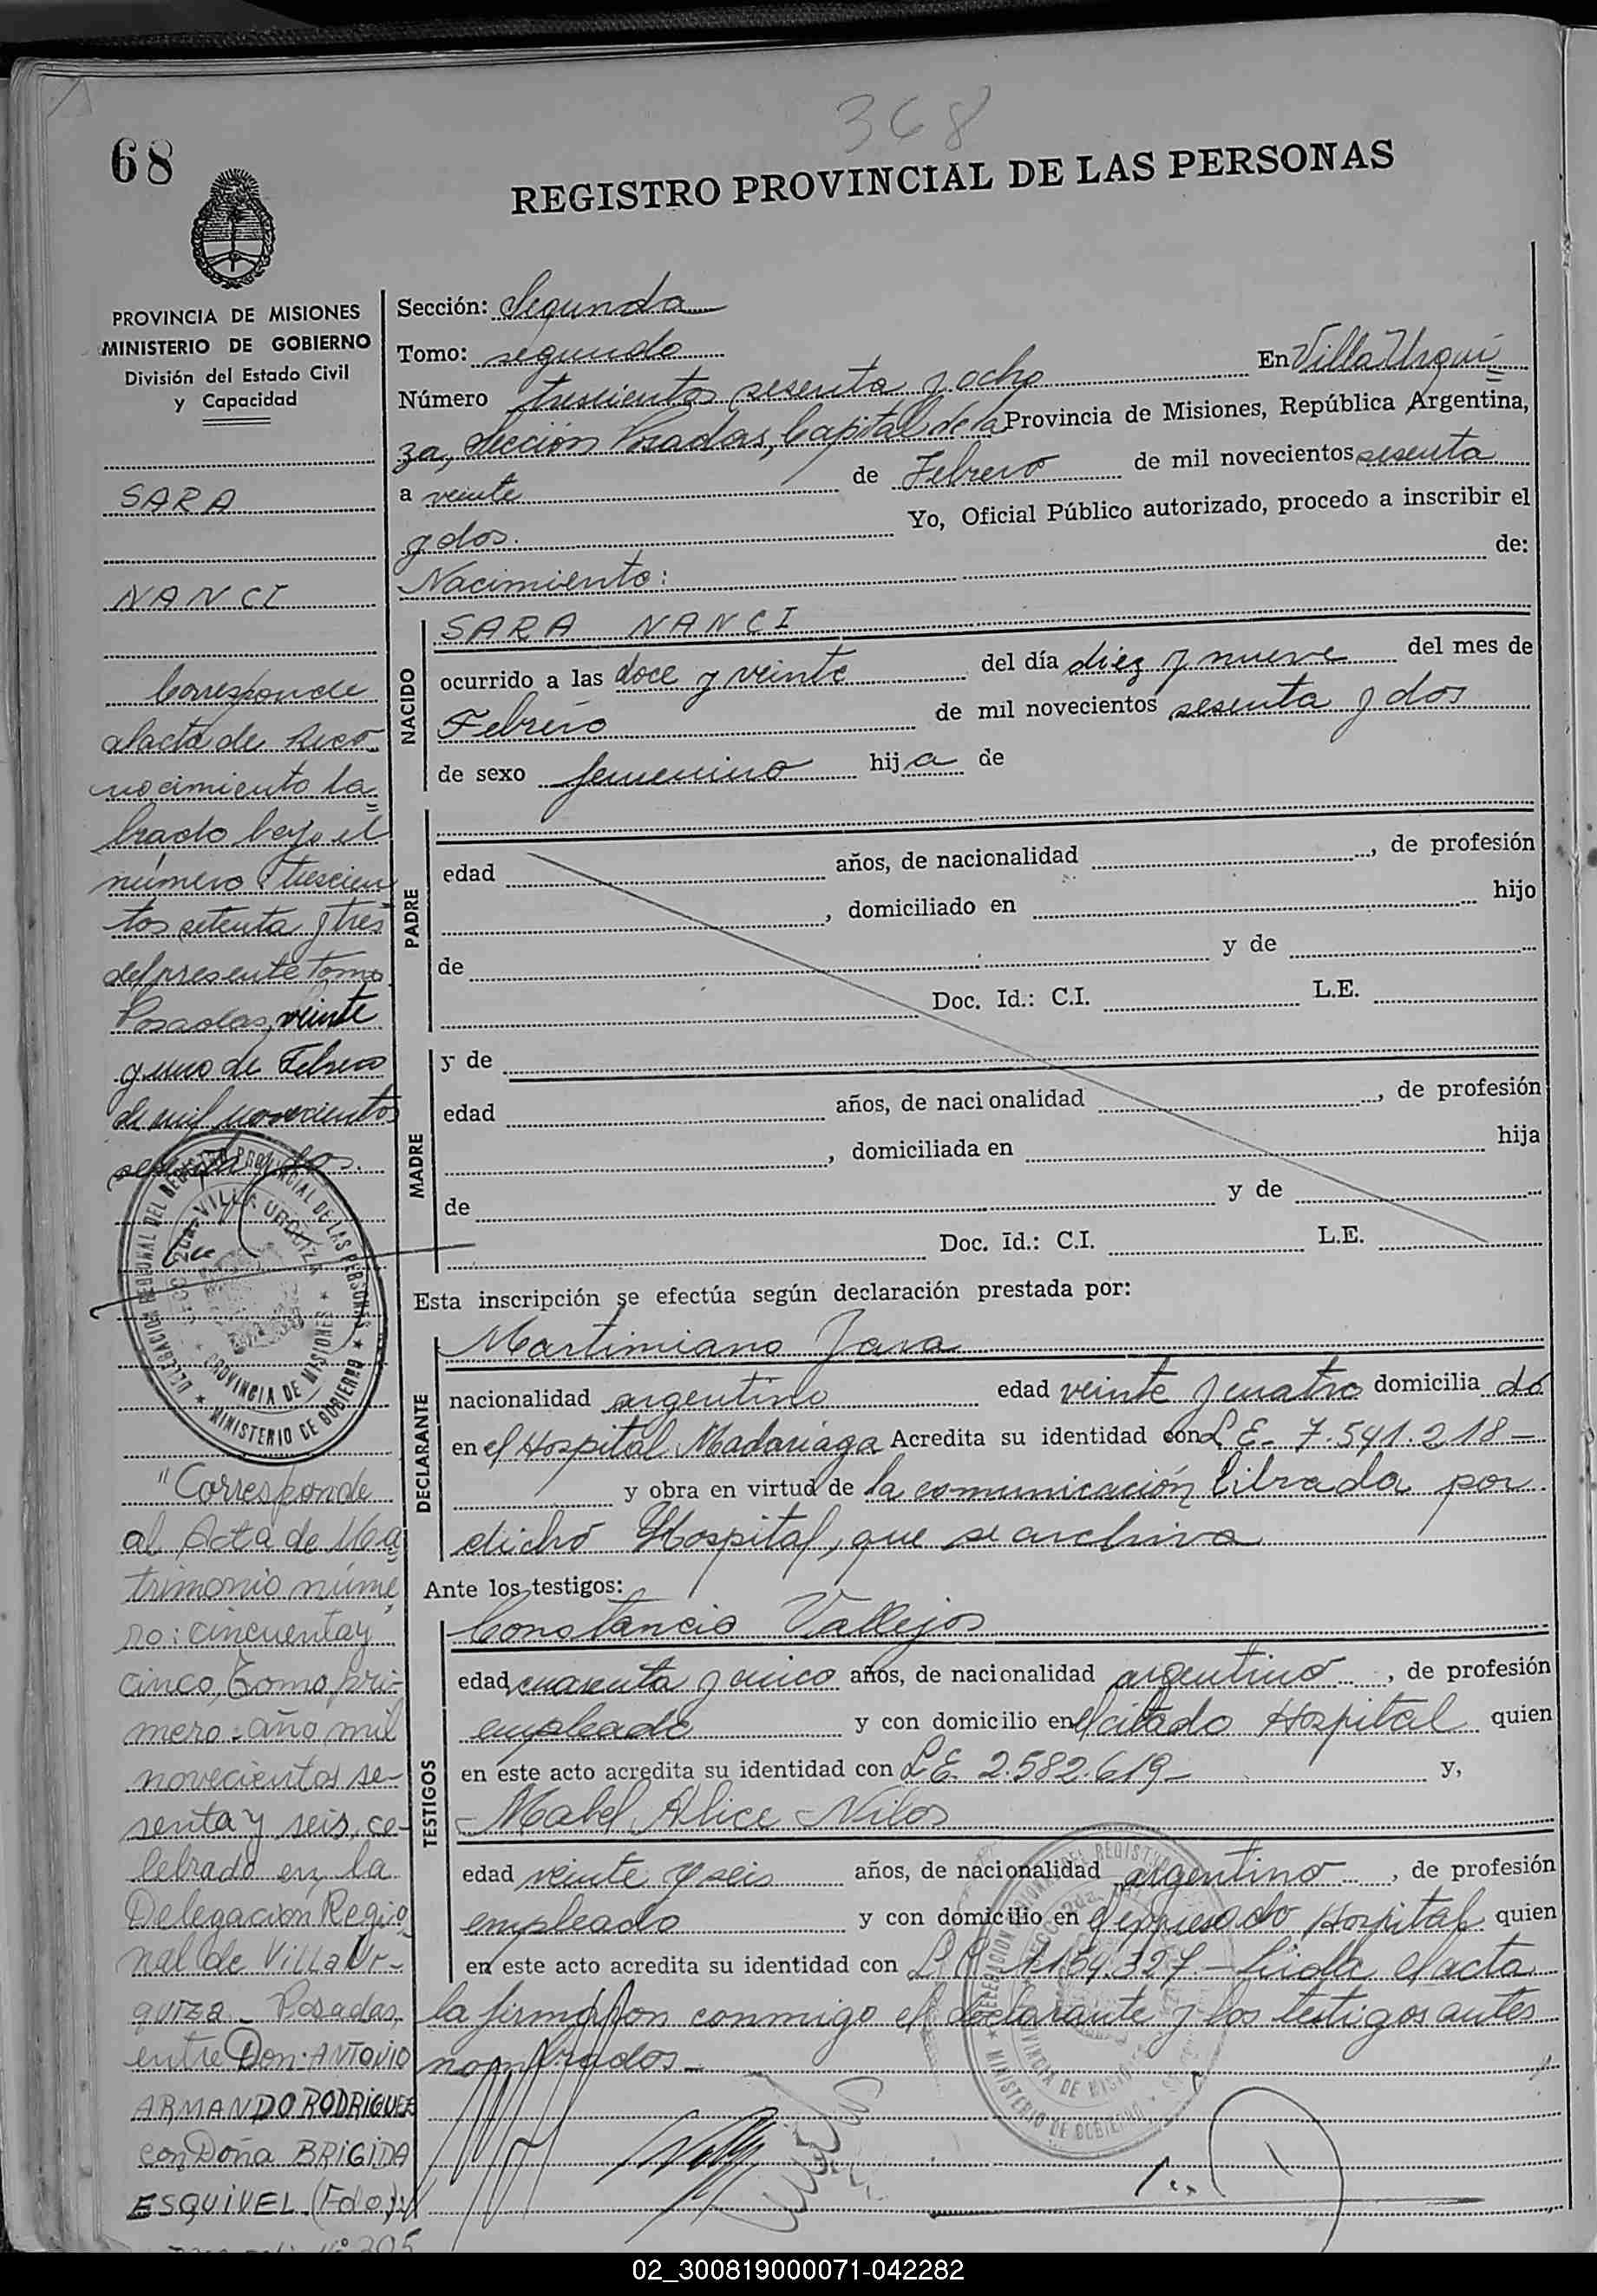 368
68
REGISTRO PROVINCIAL DE LAS PERSONAS
PROVINCIA DE MISIONES
MINISTERIO DE GOBIERNO
División del Estado Civil
y Capacidad
SARA
NANCI
Corresponde
al acta de Reco
nocimiento la=
brado bajo el
número trescien
tos setenta y tres
del presente Tomo
Posadas, veinte
y uno de Febrero
de mil novecientos
sesenta y dos.
DELEGACION REGIONAL DEL REGISTRO PROVINCIAL DE LAS PERSONAS
SECC. 2da. VILLA URQUIZA
PROVINCIA DE MISIONES
MINISTERIO DE GOBIERNO
"Corresponde
al Acta de Ma=
trimonio núme
ro: cincuenta y
cinco, Tomo pri-
mero - año mil
novecientos se-
senta y seis, ce-
lebrado en la
Delegación Regio
nal de Villa Ur-
quiza - Posadas,
entre Don: ANTONIO
ARMANDO RODRIGUEZ
con Doña BRIGIDA
ESQUIVEL. (Fdo.)
Nº 305
Sección: Segunda
Tomo: segundo
Número trescientos sesenta y ocho En Villa Urqui=
za, Sección Posadas, Capital de la Provincia de Misiones, República Argentina,
a veinte de Febrero de mil novecientos sesenta
y dos. Yo, Oficial Público autorizado, procedo a inscribir el
Nacimiento: de:
NACIDO
SARA NANCI
ocurrido a las doce y veinte del día diez y nueve del mes de
Febrero de mil novecientos sesenta y dos
de sexo femenino hija de
PADRE
edad años, de nacionalidad , de profesión
, domiciliado en hijo
de y de
Doc. Id.: C.I. L.E.
MADRE
y de
edad años, de nacionalidad , de profesión
, domiciliada en hija
de y de
Doc. Id.: C.I. L.E.
Esta inscripción se efectúa según declaración prestada por:
DECLARANTE
Martimiano Jara
nacionalidad argentino edad veinte y cuatro domicilia do
en el Hospital Madariaga Acredita su identidad con L E- 7.541.218-
y obra en virtud de la comunicación librada por
dicho Hospital, que se archiva
Ante los testigos:
TESTIGOS
Constancio Vallejos
edad cuarenta y cinco años, de nacionalidad argentino , de profesión
empleado y con domicilio en el citado Hospital quien
en este acto acredita su identidad con L.E. 2.582.619- y,
- Mabel Alice Nilos
edad veinte y seis años, de nacionalidad argentino , de profesión
empleado y con domicilio en el expresado Hospital quien
en este acto acredita su identidad con L.C. 1.159.327.- Leída el acta
la firmaron conmigo el declarante y los testigos antes
nombrados-
DELEGACION REGIONAL DEL REGISTRO
MINISTERIO DE GOBIERNO
02_300819000071-042282